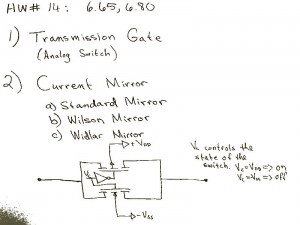 HW# 14: 6.65, 6.80
1) Transmission Gate
(Analog Switch)
2) Current Mirror
a) Standard Mirror
b) Wilson Mirror
c) Widlar Mirror
+VDD
Vc controls the
state of the
switch. Vc=VDD => on
Vc
-VSS